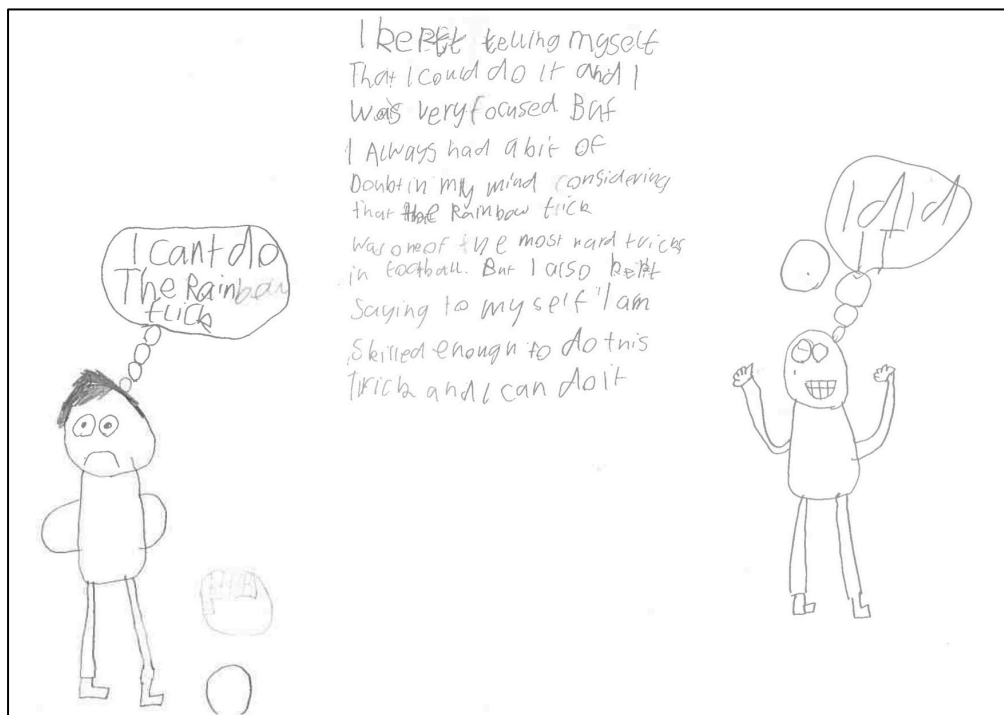 I kept telling myself
That I could do it and I
Was very focused. But
I Always had a bit of
Doubt in my mind considering
that the Rainbow trick
was one of the most hard tricks
in football. But I also kept
Saying to myself "I am
Skilled enough to do this
Trick and I can do it
I cant do
The Rainbow
trick
I did
IT